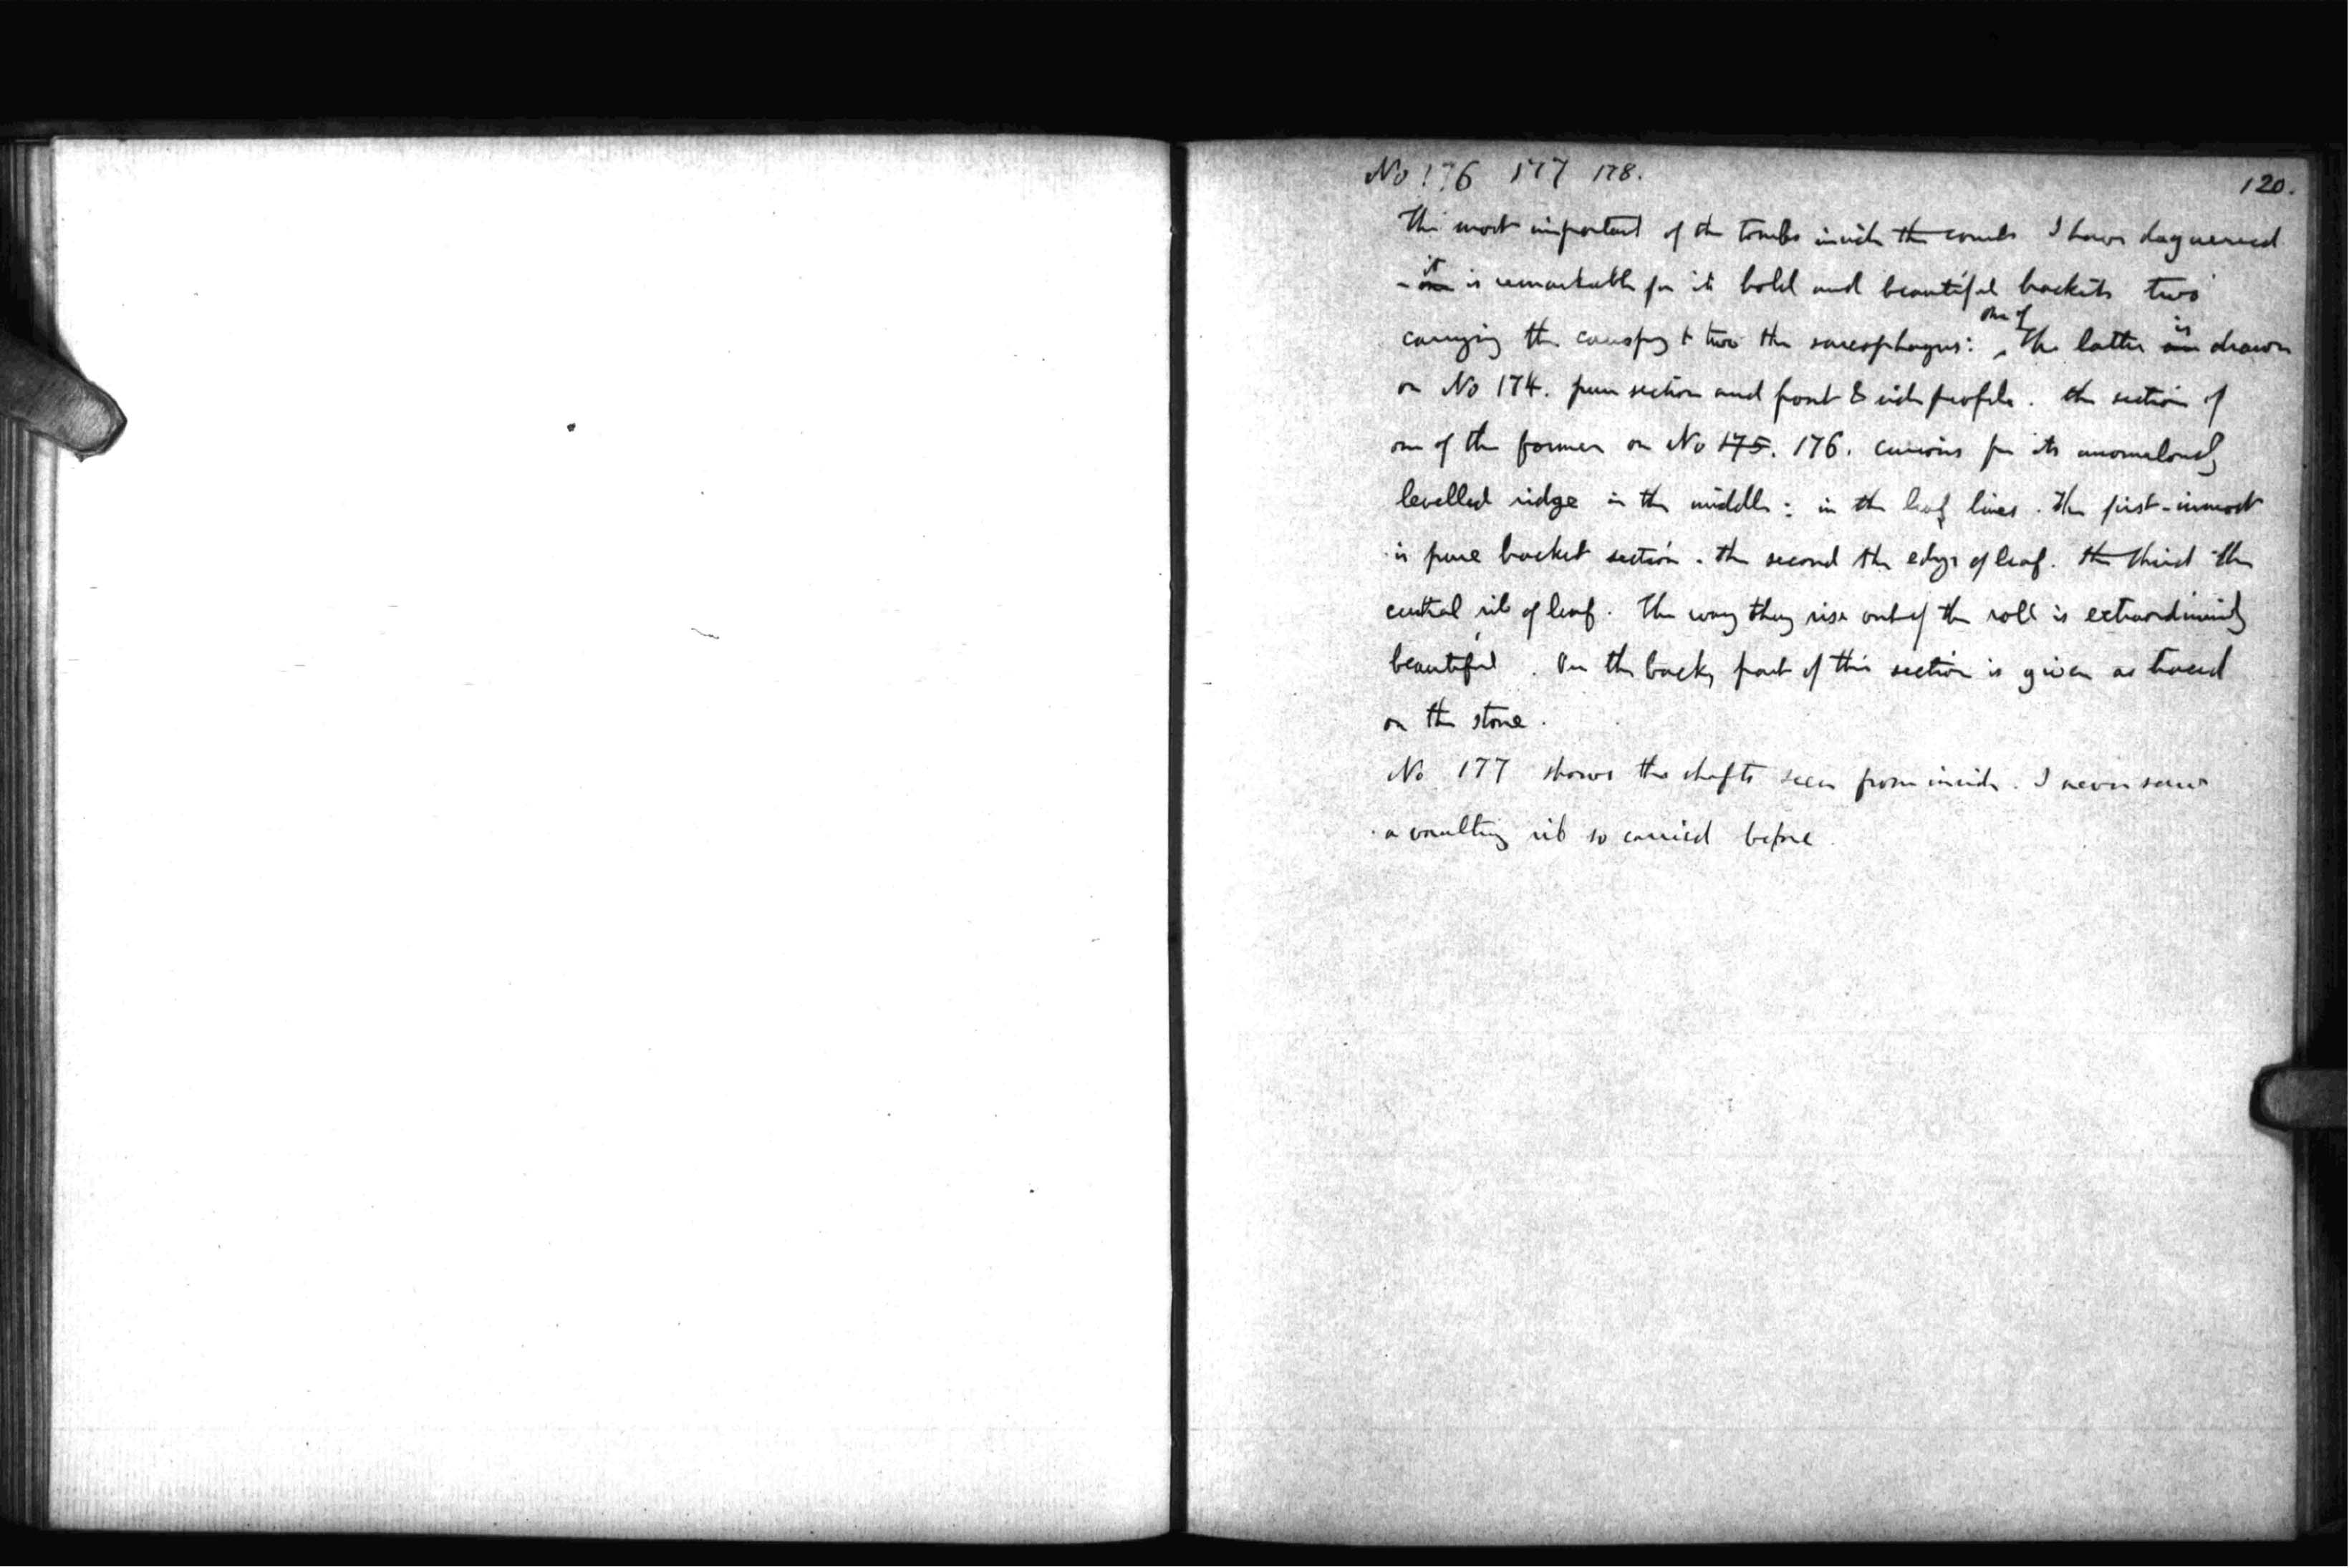 No 176 177 178.
120.
The most important of the tombs inside the I have daguerred
it
- one is remarkable for its bold and beautiful brackets two
one of is
carrying the canopy & two the sarcophagus: The latter are drawn
on No 174. pure section and front & side profile. the section of
one of the former on No 175. 176. curious for its anomalously
levelled ridge in the middle: in the leaf lines. The first-inmost
is pure bracket section. the second the edge of leaf. the third the
central rib of leaf. The way they rise out of the roll is extraordinarily
beautiful. On the back, part of this section is given as traced
on the stone.
No 177 shows the shafts seen from inside. I never saw
a vaulting rib so carried before.